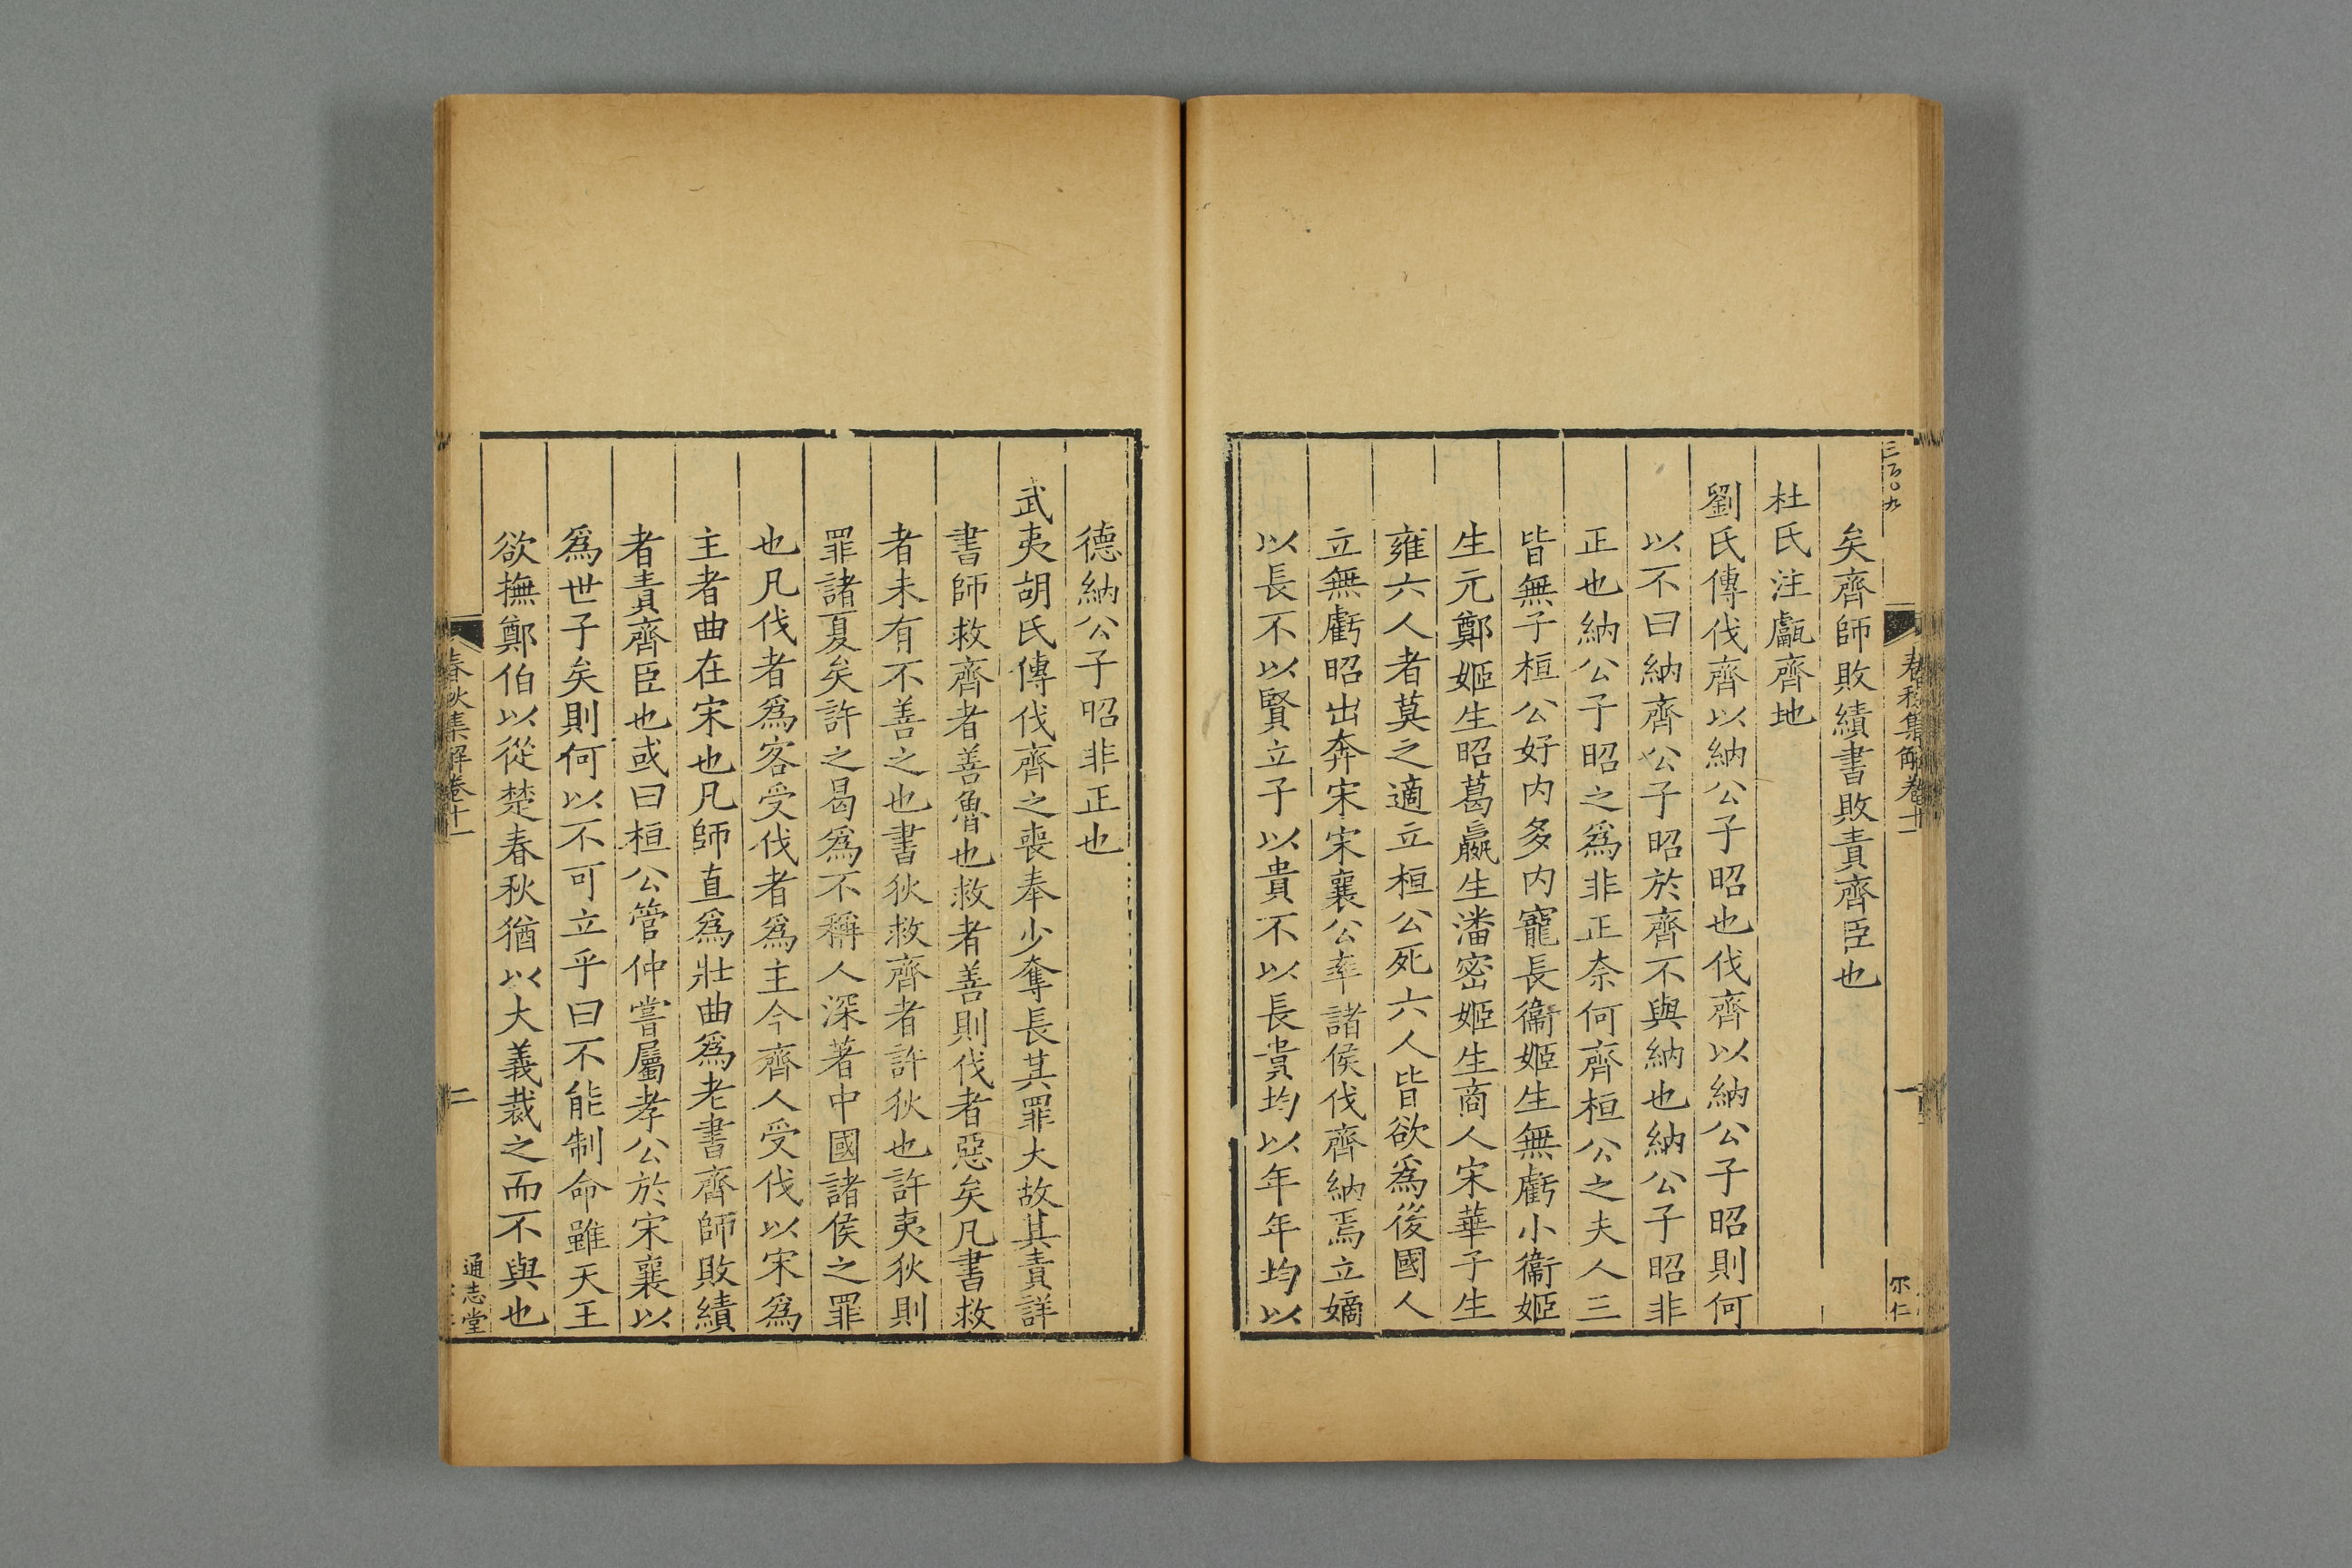 三百〇九
春秋集解卷十一
一
尔仁
矣齊師敗績書敗責齊臣也
杜氏注甗齊地
劉氏傳伐齊以納公子昭也伐齊以納公子昭則何
以不曰納齊公子昭於齊不與納也納公子昭非
正也納公子昭之爲非正奈何齊桓公之夫人三
皆無子桓公好内多内寵長衞姬生無虧小衞姬
生元鄭姬生昭葛嬴生潘密姬生商人宋華子生
雍六人者莫之適立桓公死六人皆欲爲後國人
立無虧昭出奔宋宋襄公率諸侯伐齊納焉立嫡
以長不以賢立子以貴不以長貴均以年年均以
德納公子昭非正也
武夷胡氏傳伐齊之喪奉少奪長其罪大故其責詳
書師救齊者善魯也救者善則伐者惡矣凡書救
者未有不善之也書狄救齊者許狄也許夷狄則
罪諸夏矣許之曷爲不稱人深著中國諸侯之罪
也凡伐者爲客受伐者爲主今齊人受伐以宋爲
主者曲在宋也凡師直爲壯曲爲老書齊師敗績
者責齊臣也或曰桓公管仲嘗屬孝公於宋襄以
爲世子矣則何以不可立乎曰不能制命雖天王
欲撫鄭伯以從楚春秋猶以大義裁之而不與也
春秋集解卷十一
二
通志堂